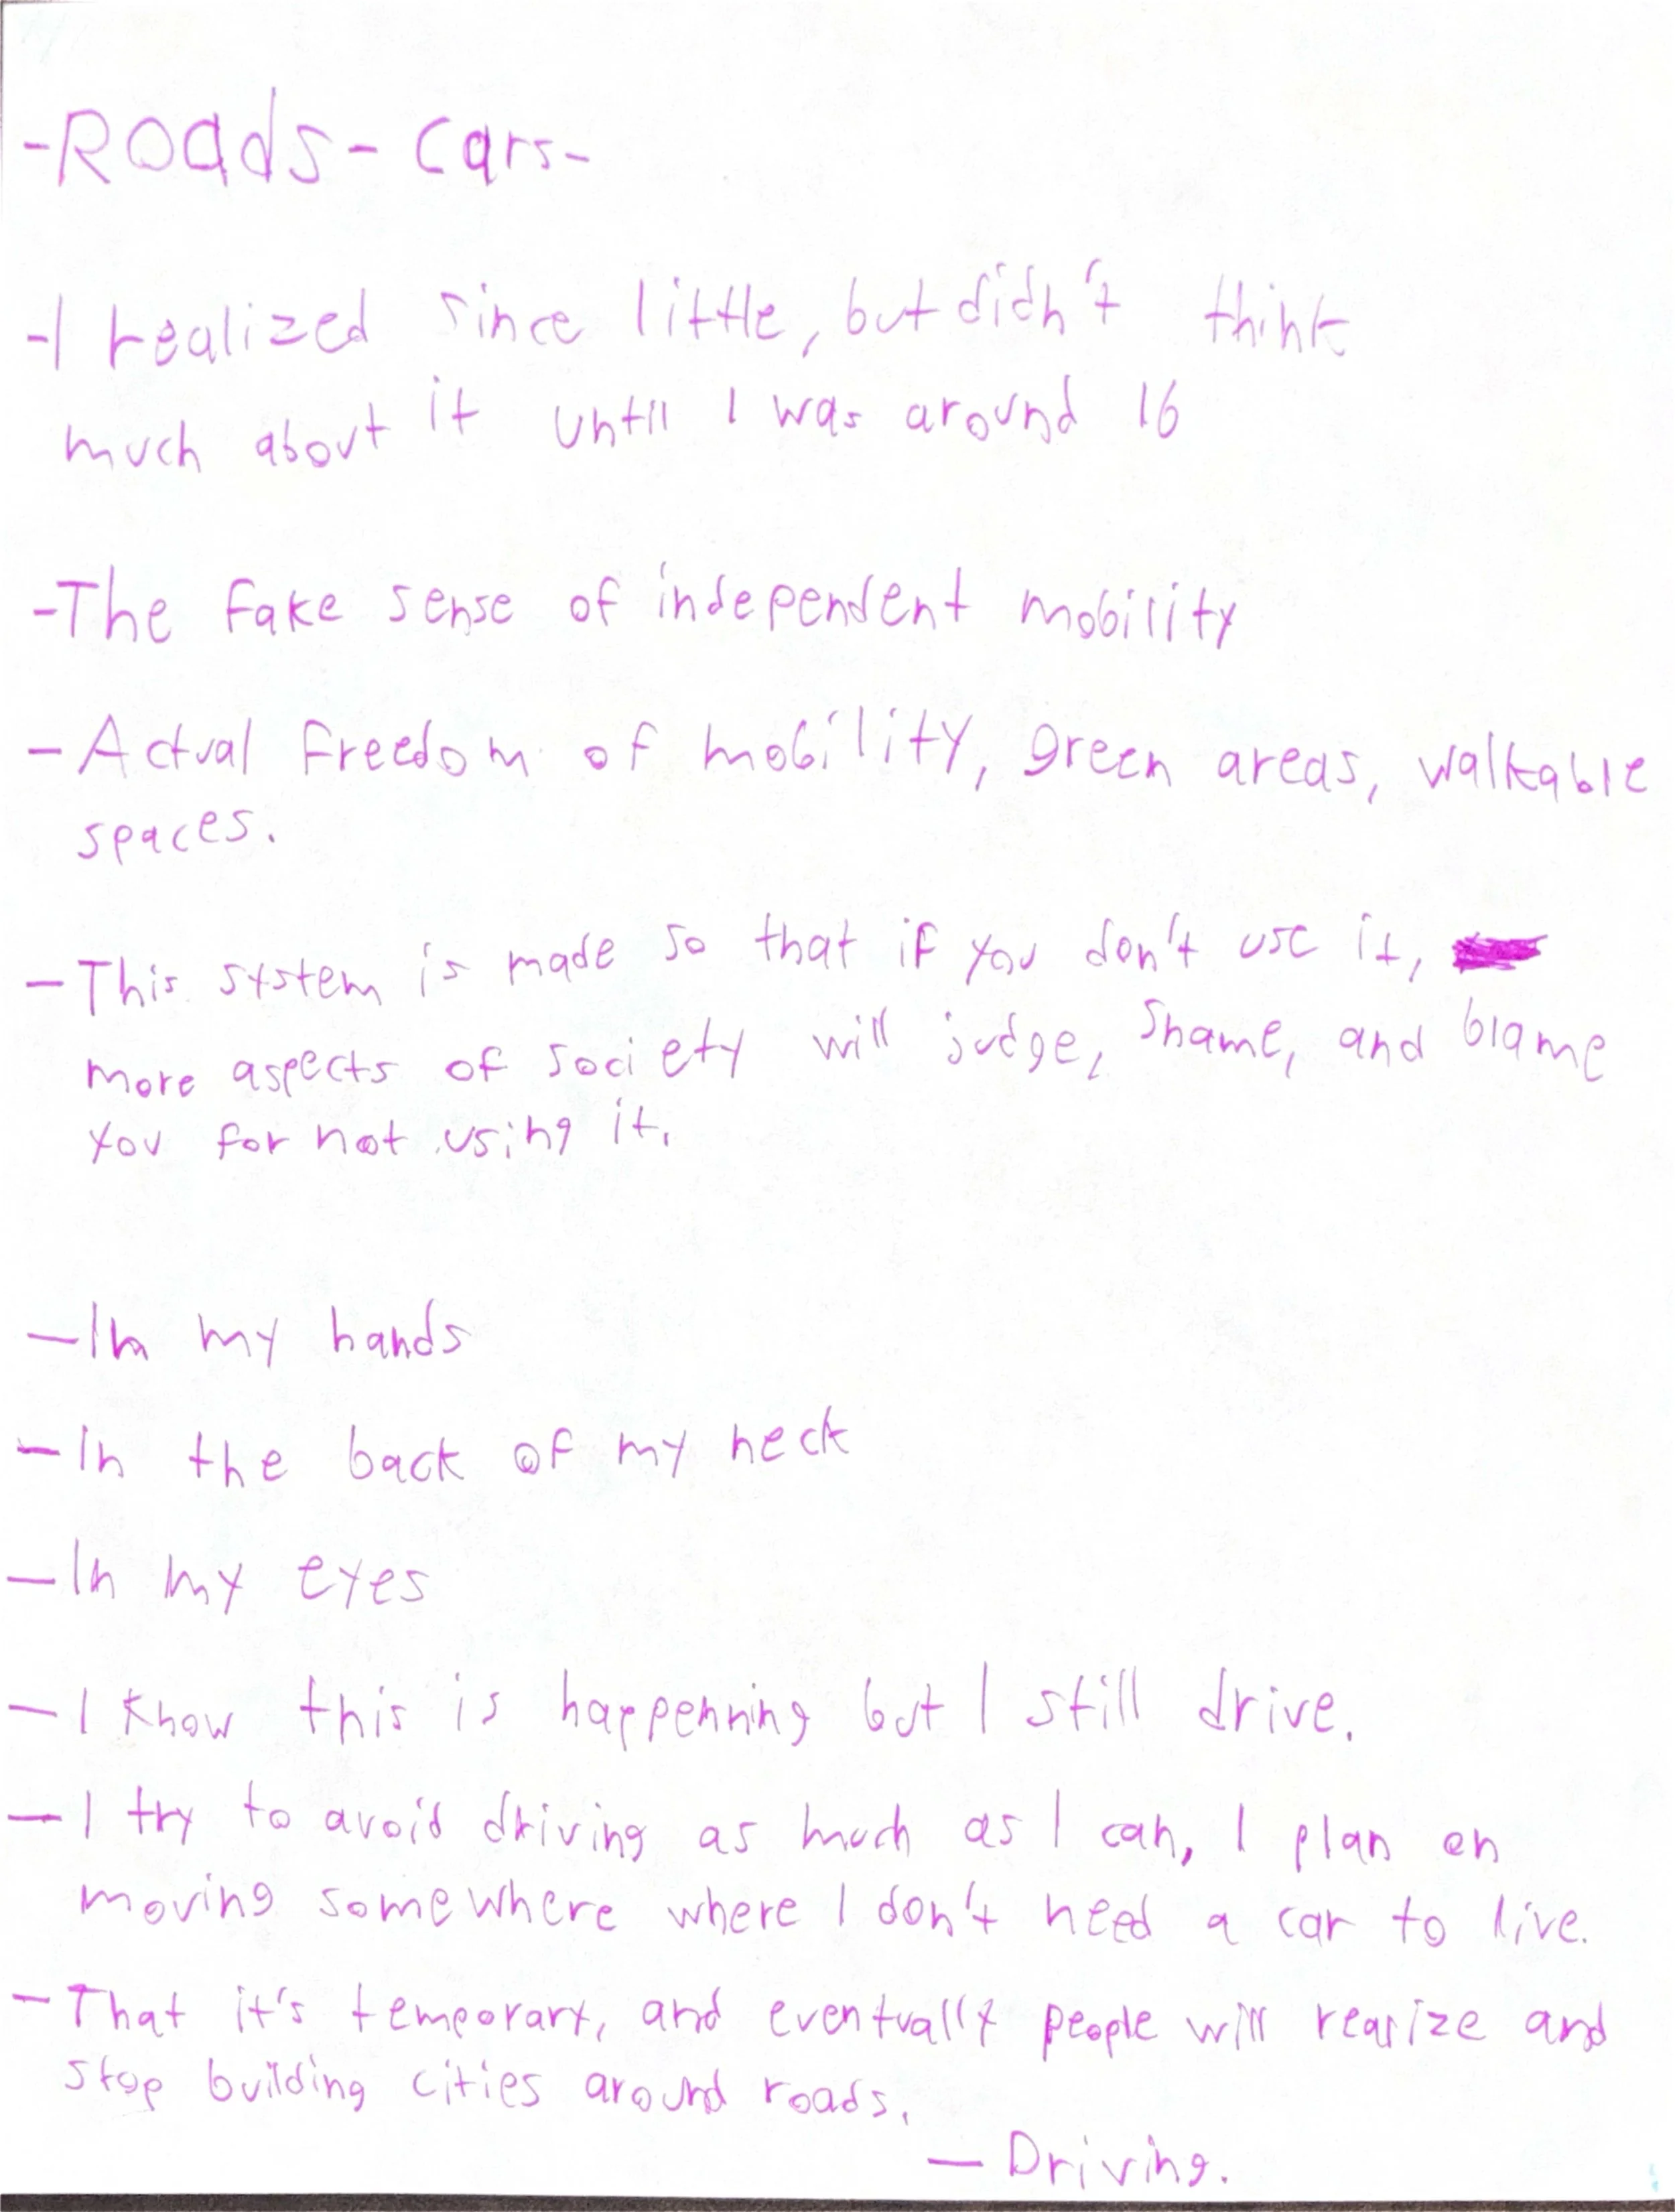 -Roads-Cars-
-I realized since little, but didn't think
much about it until I was around 16
-The fake sense of independent mobility
- Actual freedom of mobility, green areas, walkable
spaces.
- This system is made so that if you don't use it,
more aspects of society will judge, shame, and blame
you for not using it.
- In my hands
- In the back of my neck
- In my eyes
- I know this is happenning but I still drive.
- I try to avoid driving as much as I can, I plan en
moving somewhere where I don't need a car to live.
- That it's temporary, and eventually people will realize and
stop building cities around roads.
- Driving.